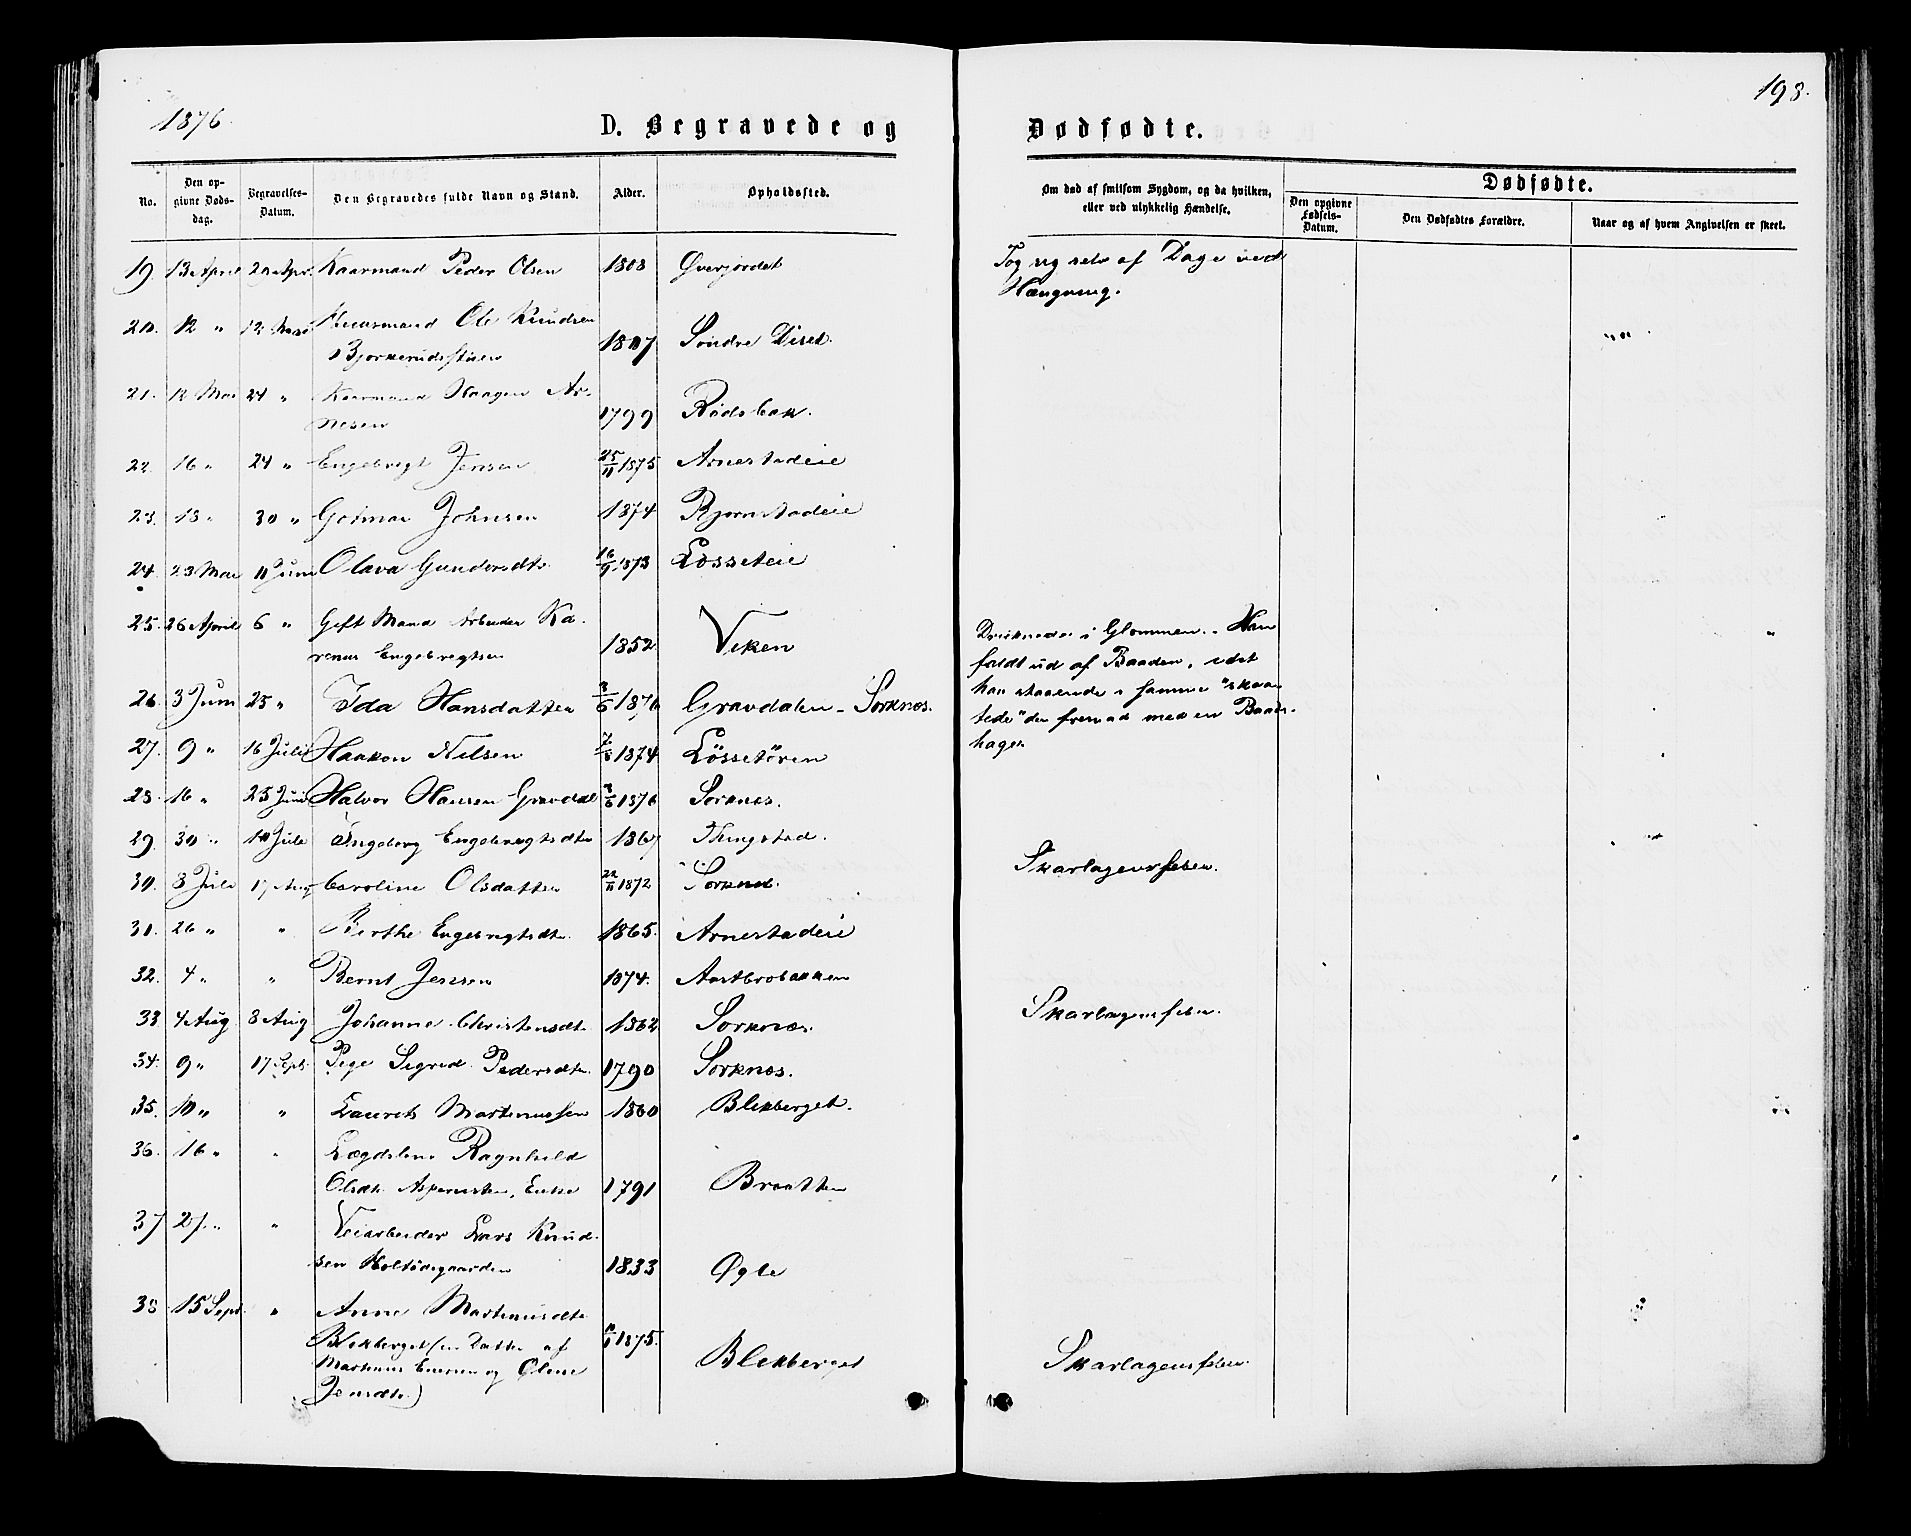 1876.
198.
D. Begravede og Dødfødte.
No.
Den opgivne Døds-dag.
Begravelses-Datum.
Den Begravedes fulde Navn og Stand.
Alder.
Opholdssted.
Om død af smitsom Sygdom, og da hvilken,
eller ved ulykkelig Hændelse.
Dødfødte.
Den opgivne Fødsels-Datum.
Den Dødfødtes Forældre.
Naar og af hvem Angivelsen er skeet.
19. 13 April Kaarmand Peder Olsen 1808 Øverjordet Tog sig selv af Dage ved
Hængning.
20. 12 " 12 Mai Ole Knudsen
Bjørkerudstuen 1807 Søndre Diset.
21. 12 Mai 24 " Kaarmand Haagen Ar-
nesen 1799 Rødsbak.
22. 16 " 24 " Engebregt Jensen 25/11 1875 Arnestadeie
23. 13 " 30 " Gotmar Johnsen 1874 Bjørnstadeie
24. 23 Mai 11 Juni Olava Gundersdtr. 16/9 1873 Løsseteie
25. 26 April 6 " Gift Mand Arbeider Ka-
renus Engebregtsen 1852 Viken
Druknede i Glommen. Han
faldt ud af Baaden, idet
han staaende i samme "skaa-
tede" den fremad med en Baads-
hage.
26. 3 Juni 25 " Ida Hansdatter 1876 Gravdalen - Sorknes.
27. 9 " 16 Juli Haakon Nilsen 1874 Løssetøren
28. 16 " 25 Juni Halvor Hansen Gravdal 1876 Sorknes.
29. 30 " 10 Juli Ingeborg Engebregtsdtr 1867 Thingstad.
30. 8 Juli 17 Aug Caroline Olsdatter 1872 Sorknes. Skarlagensfeber.
31. 26 " " Berthe Engebregtsdtr. 1865. Arnestadeie
32. 4 " " Bernt Jensen 1874. Aastbrobakken
33 4 Aug 8 Aug Johanne Christensdtr 1862 Sorknes. Skarlagensfeber.
34. 9 " 17 Sept. Pige Sigrid Pedersdtr. 1790 Sorknes.
35. 10 " " Laurits Martinussen 1860 Blekberget.
36. 16 " " Lægdslem Ragnhild
Olsdtr. Enke 1791 Braatten
37 27 " " Veiarbeider Lars Knud-
sen Holtødegaarden 1833 Øgle
38 15 Sept. " Anne Martinusdtr
Blekberget (en Datter af
Martinus og Oline
Jensdtr.) 1875. Blekberget Skarlagensfeber.